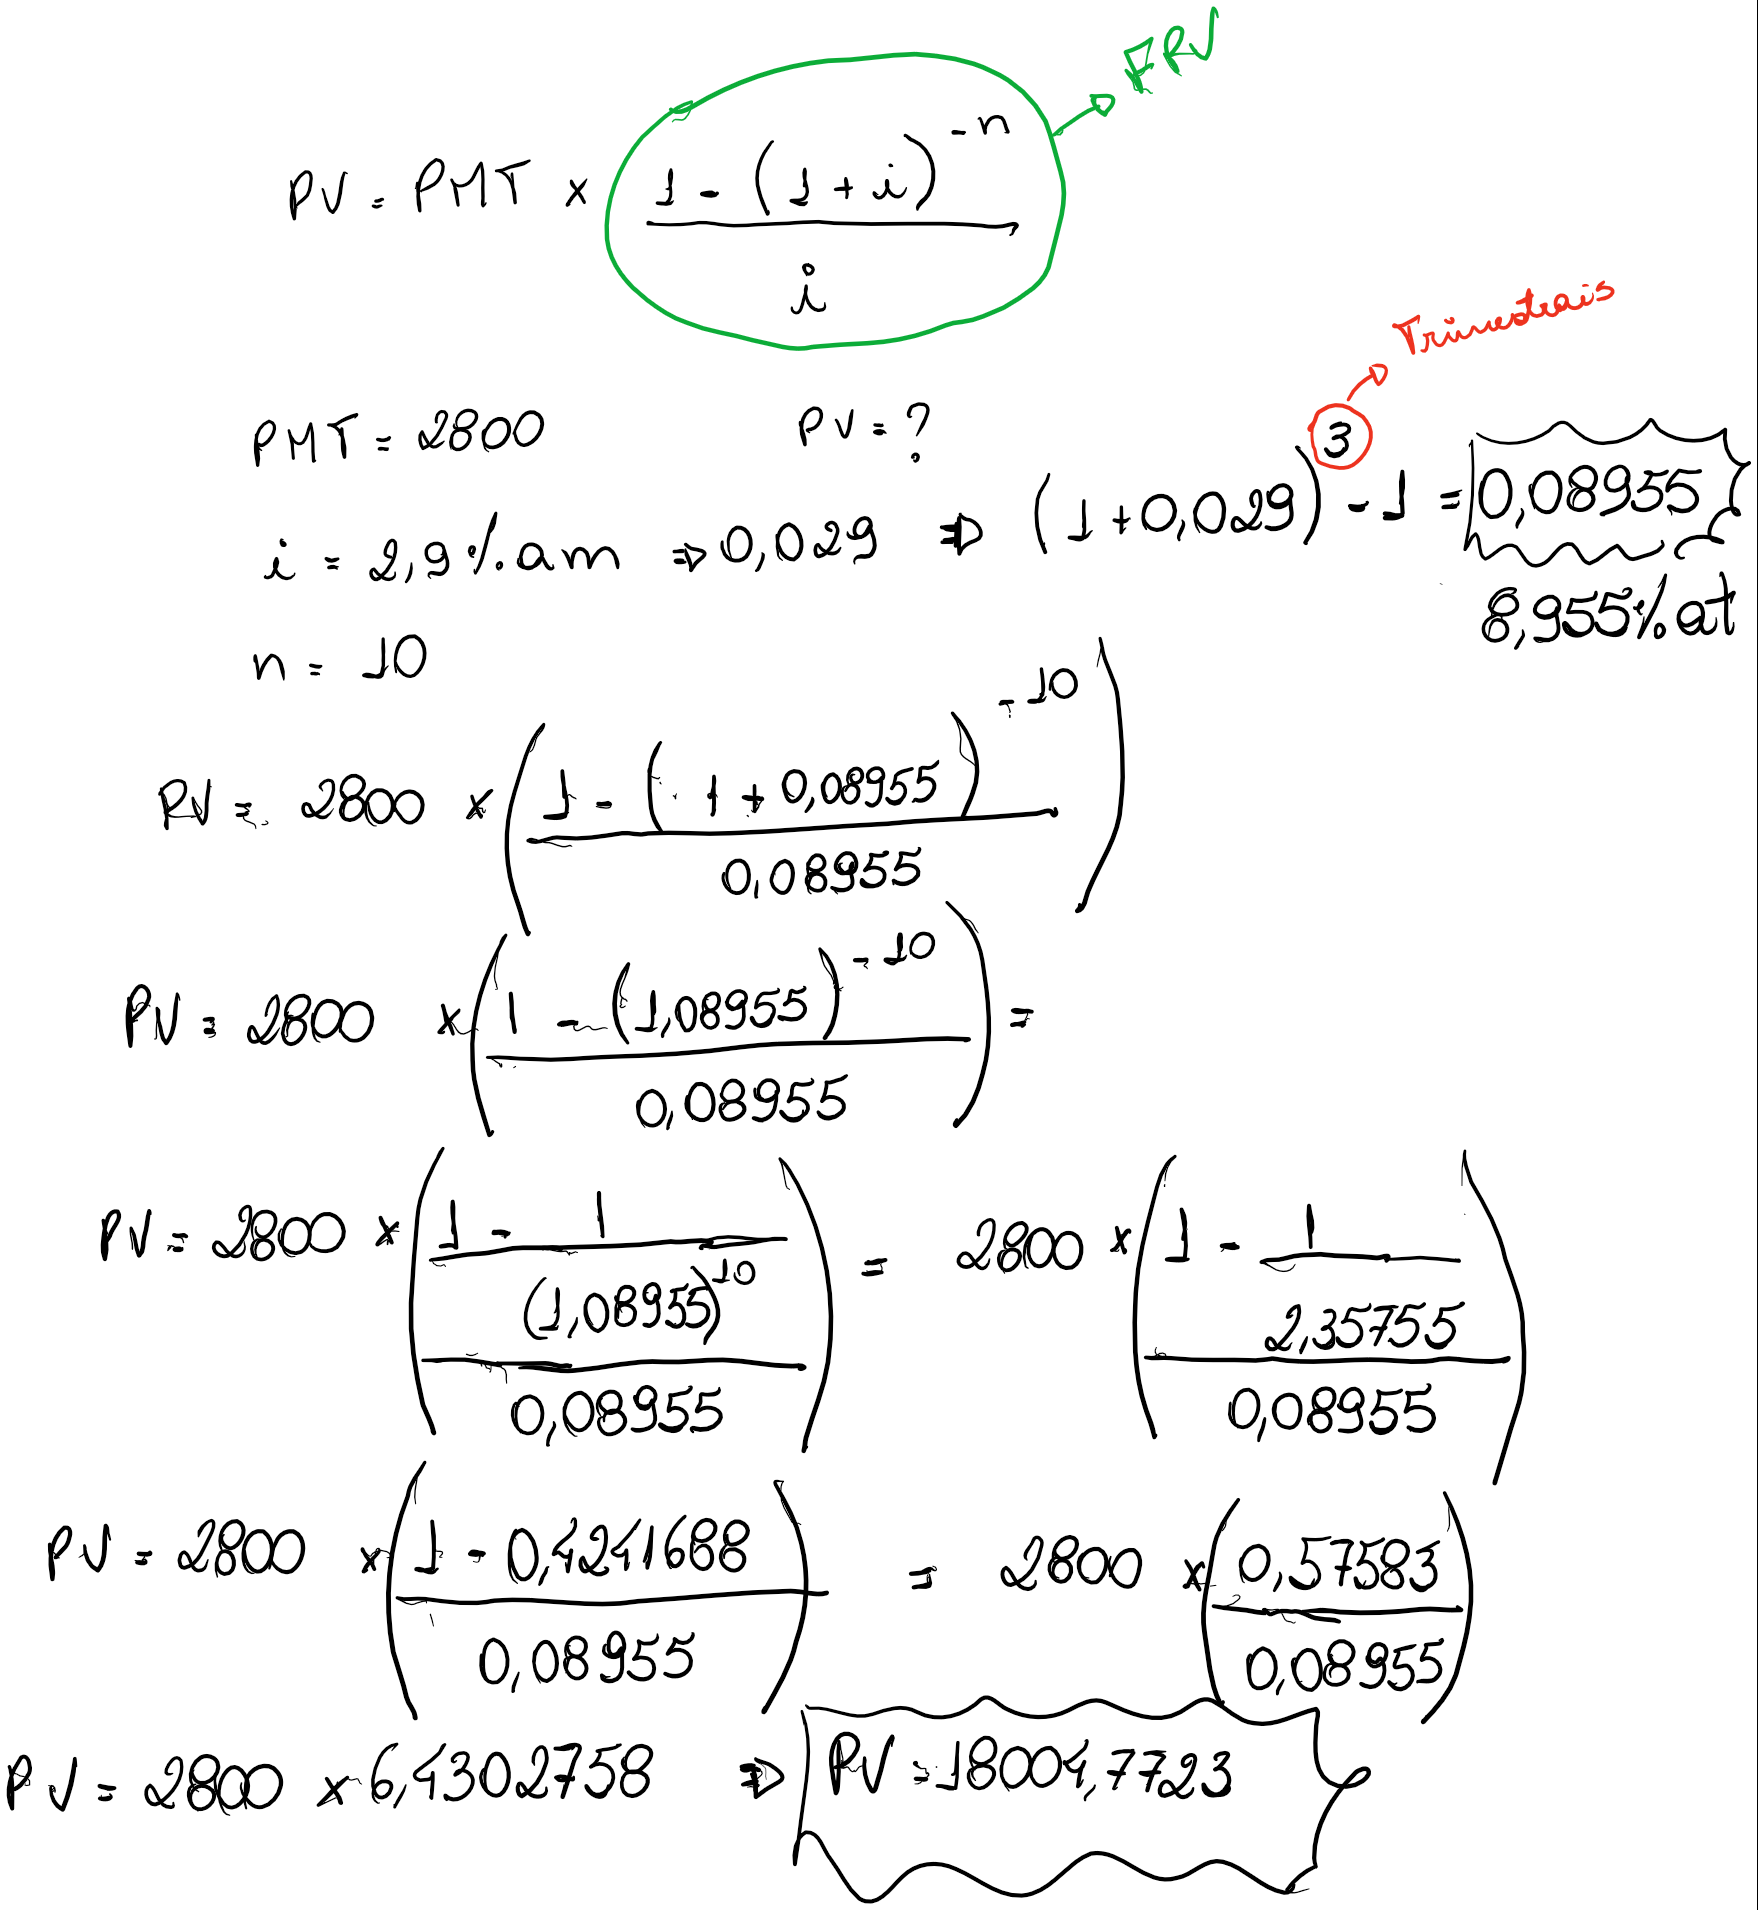 FRV
PV = PMT x 1 - (1 + i)^-n / i
Trimestrais
PMT = 2800 PV = ?
i = 2,9% am ⇒ 0,029 ⇒ (1 + 0,029)^3 - 1 = 0,08955
8,955% at
n = 10
PV = 2800 x (1 - (1 + 0,08955)^-10 / 0,08955)
PV = 2800 x (1 - (1,08955)^-10 / 0,08955) =
PV = 2800 x (1 - 1 / (1,08955)^10 / 0,08955) = 2800 x (1 - 1 / 2,35755 / 0,08955)
PV = 2800 x (1 - 0,4241688 / 0,08955) = 2800 x (0,57583 / 0,08955)
PV = 2800 x 6,4302758 ⇒ PV = 18004,7723